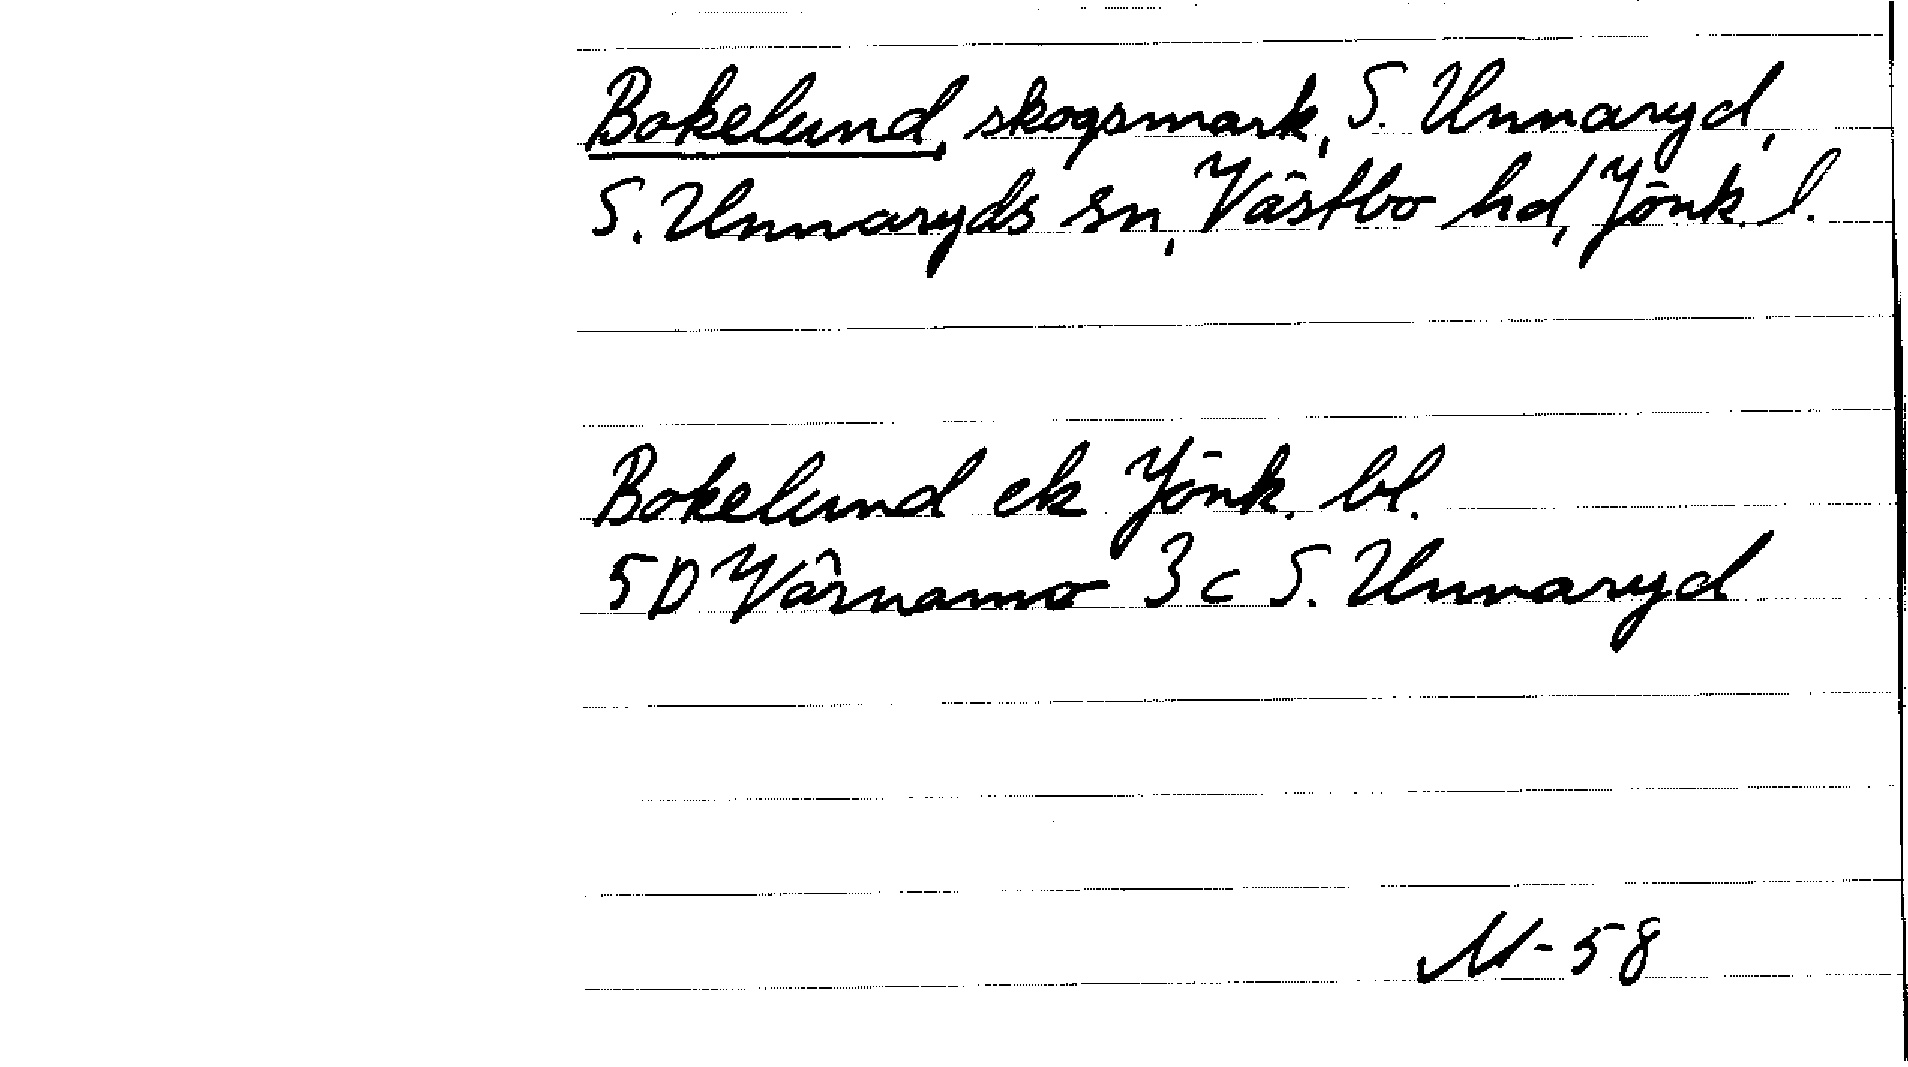 Bokelund, skogsmark, S. Unnaryd,
S. Unnaryds sn, Västbo hd, Jönk. l.
Bokelund ek Jönk. bl.
5D Värnamo 3c S. Unnaryd
M-58